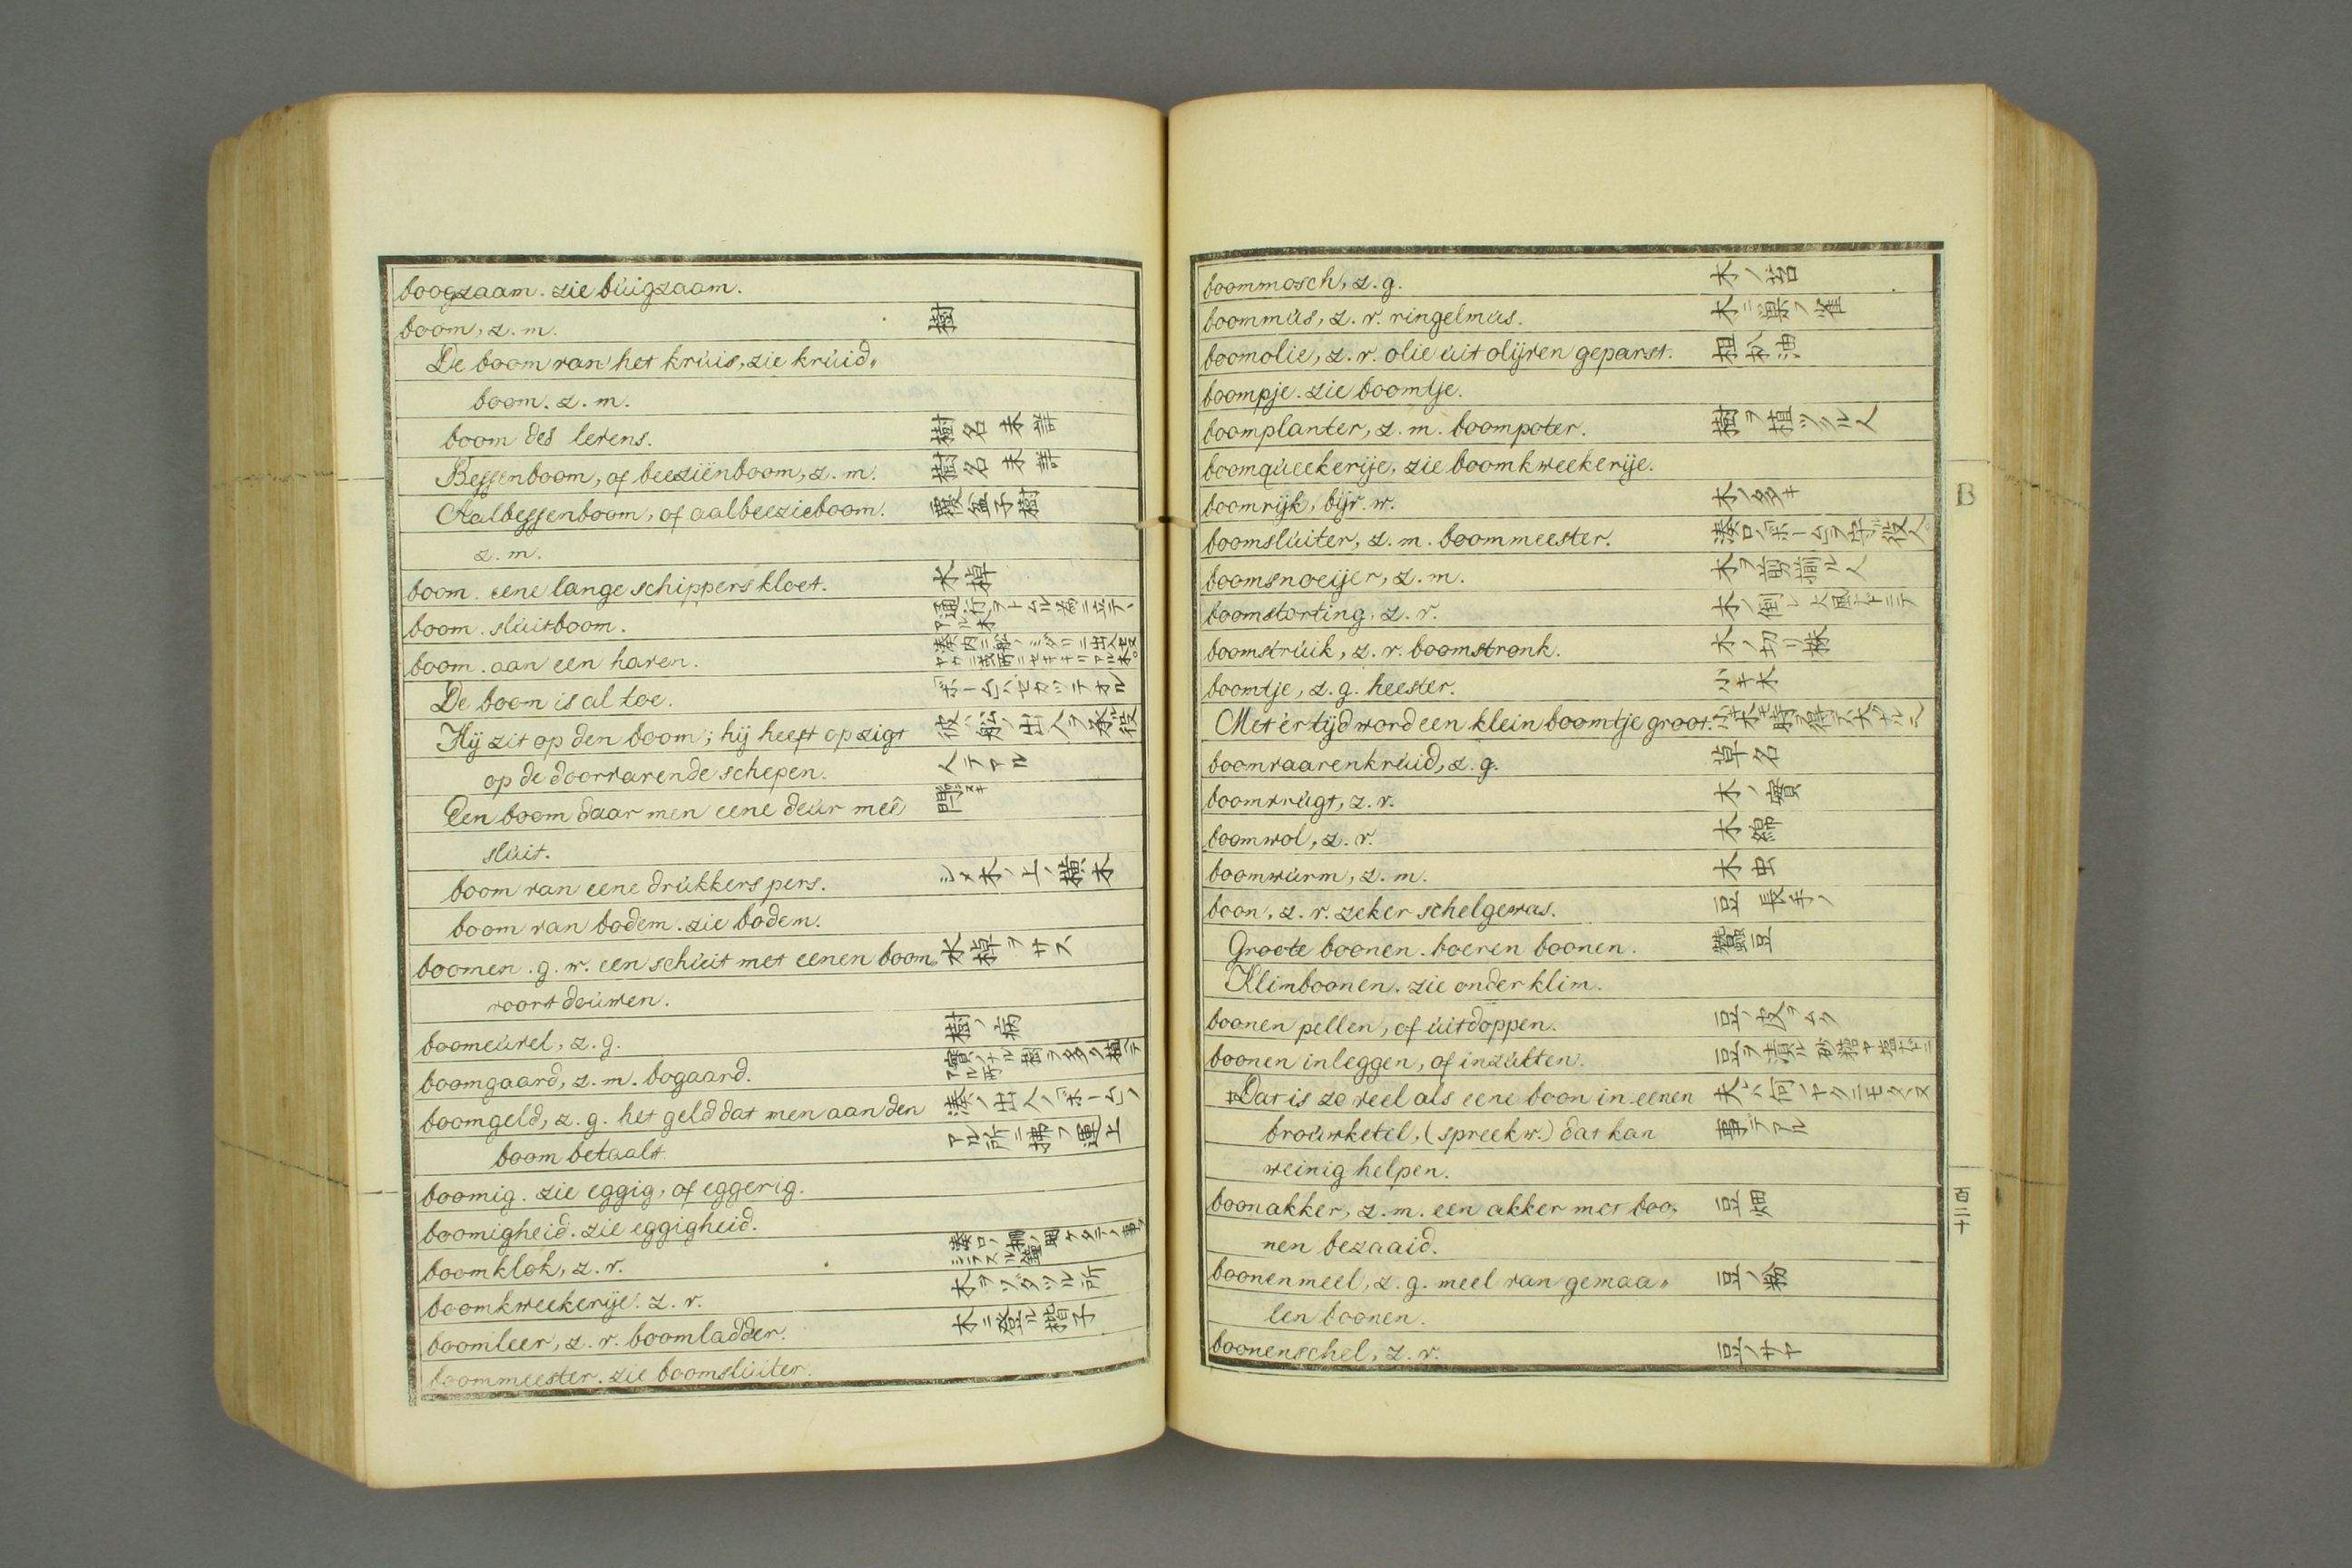 boogzaam. zie búigzaam.
boom, z. m. 樹
De boom van het krúis, zie krúid„
boom. z. m.
boom des levens. 樹名未詳
Bessenboom, of beeziënboom, z. m. 樹名未詳
Aalbessenboom, of aalbeezieboom. 覆盆子樹
z. m.
boom. eene lange schippers kloet. 水棹
boom. slúitboom. 通行ヲトムル為ニ立テアル木
boom. aan een haven.
De boom is al toe.
Hij zit op den boom; hij heeft opzigt 彼ハ舩ノ出入ヲ
op de doorvarende schepen. 人テアル
Een boom daar men eene deúr meê
slúit.
boom van eene drúkkers pers. シメ木ノ上ノ横木
boom van bodem. zie bodem.
boomen. g. w. een schúit met eenen boom 水棹ヲサス
voort doúwen.
boomeúvel, z. g. 樹ノ病
boomgaard, z. m. bogaard. 實ノナル樹ヲ多ク植テアル所
boomgeld, z. g. het geld dat men aan den 湊ノ出入ノボームノ
boom betaalt アル所ニ拂フ運上
boomig. zie eggig, of eggerig.
boomigheid. zie eggigheid.
boomklok, z. v.
boomkweekerije. z. v. 木ヲソダツル所
boomleer, z. v. boomladder. 木ニ登ル楷子
boommeester. zie boomslúiter.
boommosch, z. g. 木ノ苔
boommús, z. v. ringelmús. 木ニ巣フ雀
boomolie, z. v. olie úit olijven geparst.
boompje. zie boomtje.
boomplanter, z. m. boompoter. 樹ヲ植ツクル人
boomqúeekerije, zie boomkweekerije.
boomrijk, bijv. w. 木ノ多キ
boomslúiter, z. m. boommeester. 湊口ノボームヲ守ル役人
boomsnoeijer, z. m. 木ヲ剪揃ル人
boomstorting, z. v. 木ノ倒レ大風ナドニテ
boomstrúik, z. v. boomstronk. 木ノ切リ株
boomtje, z. g. heester. 小キ木
Met ér tijd word een klein boomtje groot.
boomvaarenkrúid, z. g. 草名
boomvrúgt, z. v. 木ノ實
boomwol, z. v. 木綿
boomwúrm, z. m. 木虫
boon, z. v. zeker schelgewas. 豆 長キノ
Groote boonen. boeren boonen. 蠶豆
Klimboonen. zie onder klim.
boonen pellen, of úitdoppen. 豆ノ皮ヲムク
boonen inleggen, of inzúlten. 豆ヲ漬ル砂糖ヤ塩ナドニ
Dat is zo veel als eene boon in eenen 夫ハ何ノヤクニモタヽヌ
broúwketel, (spreekw.) dat kan 事デアル
weinig helpen.
boonakker, z. m. een akker met boo„ 豆畑
nen bezaaid.
boonenmeel, z. g. meel van gemaa„ 豆ノ粉
len boonen.
boonenschel, z. v. 豆ノサヤ
B
百二十